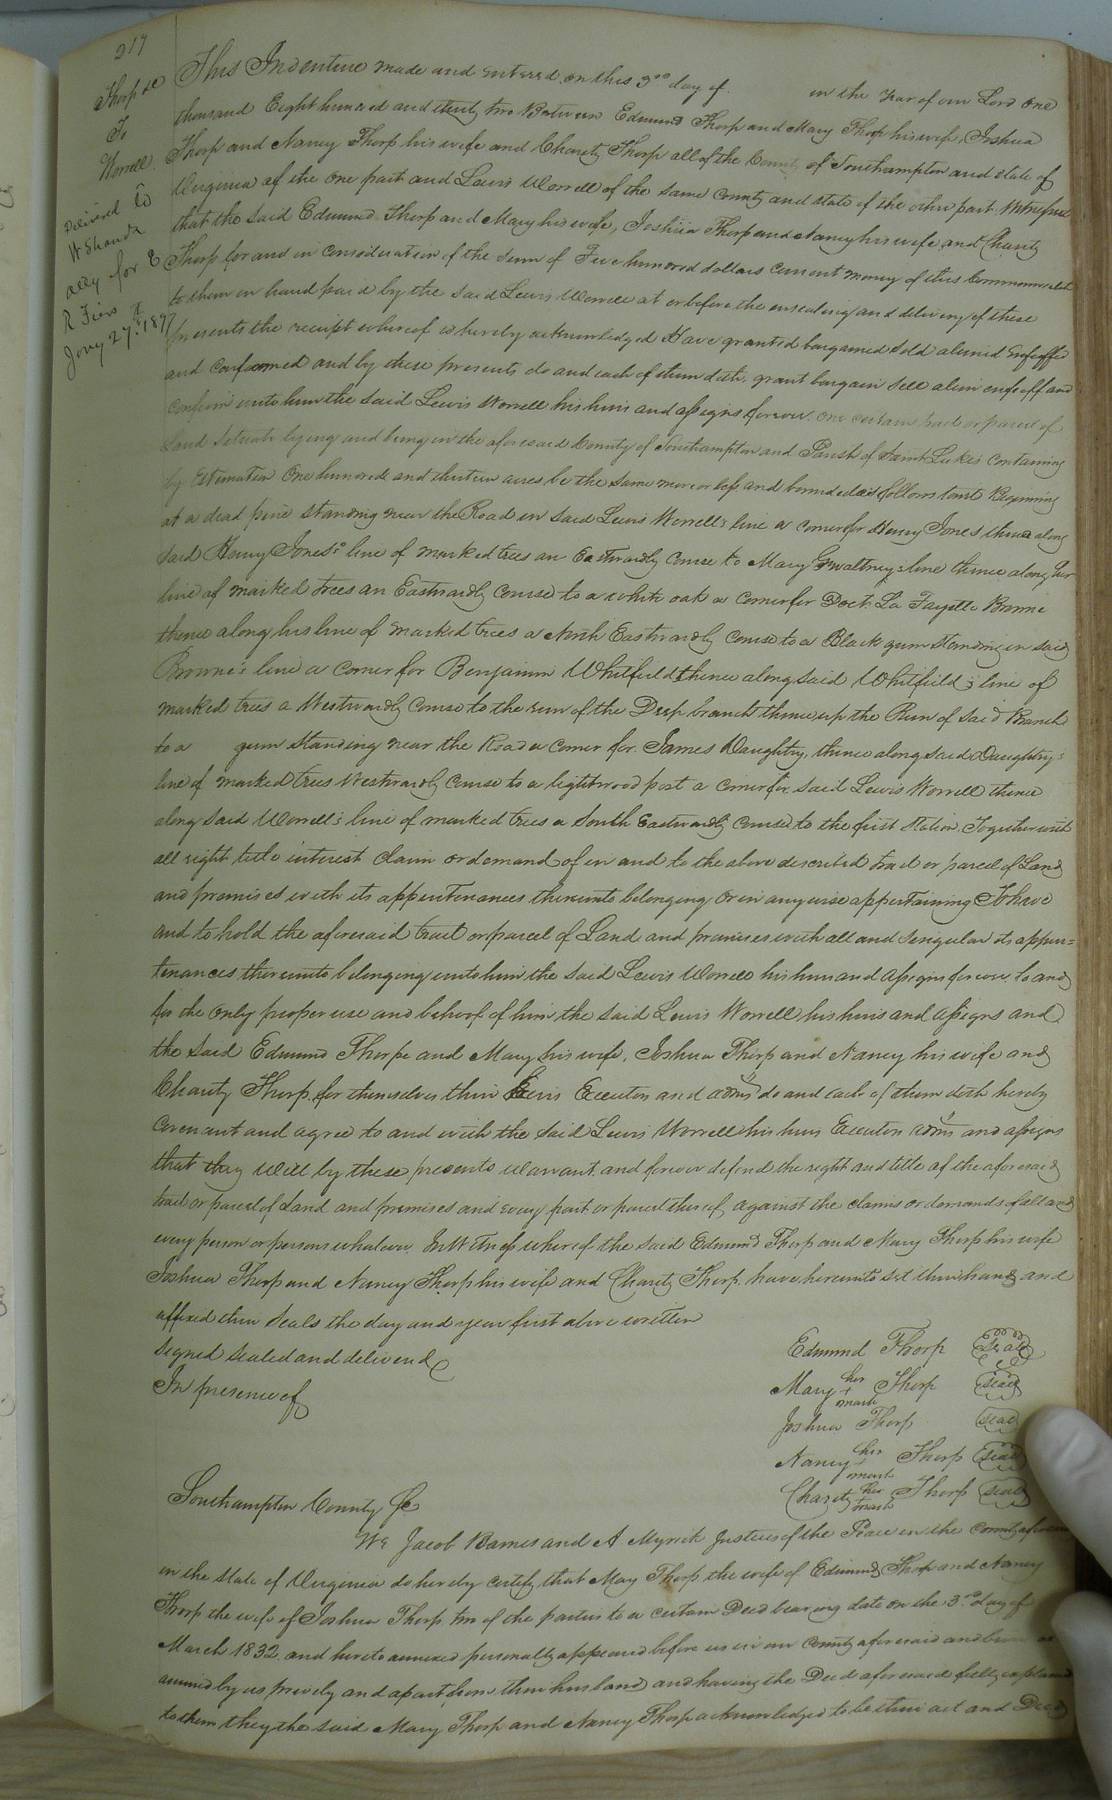 217
Thorp &c
To
Worrell
Delivered to
W Shands
atty for E
R Tiers
Jany 27th 1897
This Indenture made and entered on this 3rd day of in the Year of our Lord One
thousand Eight hundred and thirty two Between Edmund Thorp and Mary Thorp his wife, Joshua
Thorp and Nancy Thorp his wife and Charity Thorp all of the County of Southampton and state of
Virginia of the One part and Lewis Worrell of the same County and state of the other part Witnesseth
that the said Edmund Thorp and Mary his wife, Joshua Thorp and Nancy his wife and Charity
Thorp for and in consideration of the sum of Five hundred dollars current money of this Commonwealth
to them in hand paid by the said Lewis Worrell at or before the ensealing and delivery of these
presents the receipt whereof is hereby acknowledged Have granted bargained sold aliened enfeoffed
and confirmed and by these presents do and each of them doth grant bargain sell alien enfeoff and
confirm unto him the said Lewis Worrell his heirs and assigns forever. One certain tract or parcel of
Land Situate lying and being in the aforesaid County of Southampton and Parish of Saint Lukes Containing
by Estimation One hundred and thirteen acres be the same more or less and bounded as follows to wit Beginning
at a dead pine standing near the Road in said Lewis Worrell's line a corner for Henry Jones thence along
said Henry Jones's line of marked trees an Eastwardly Course to Mary Gwaltney's line thence along her
line of marked trees an Eastwardly Course to a white oak a corner for Doct. La Fayette Browne
thence along his line of marked trees a North Eastwardly Course to a Black gum standing in said
Browne's line a corner for Benjamin Whitfield thence along said Whitfield's line of
marked trees a Westwardly Course to the run of the Deep branch thence up the Run of said Branch
to a gum standing near the Road a Corner for James Daughtry, thence along said Daughtry's
line of marked trees Westwardly Course to a lightwood post a corner for said Lewis Worrell thence
along said Worrell's line of marked trees a South Eastwardly Course to the first Station. Together with
all right title interest claim or demand of in and to the above described tract or parcel of Land
and premises with its appurtenances thereunto belonging or in anywise appertaining To have
and to hold the aforesaid tract or parcel of Land and premises with all and singular its appur=
tenances thereunto belonging unto him the said Lewis Worrell his heirs and assigns forever. to and
for the only proper use and behoof of him the said Lewis Worrell his heirs and assigns and
the said Edmund Thorpe and Mary his wife, Joshua Thorp and Nancy his wife and
Charity Thorp for themselves their heirs Executors and adms do and each of them doth hereby
Covenant and agree to and with the said Lewis Worrell his heirs Executors adms and assigns
that they will by these presents warrant and forever defend the right and title of the aforesaid
tract or parcel of Land and premises and every part or parcel thereof against the claims or demands of all and
every person or persons whatever. In Witness whereof the said Edmund Thorp and Mary Thorp his wife
Joshua Thorp and Nancy Thorp his wife and Charity Thorp have hereunto set their hands and
affixed their Seals the day and year first above written
Signed Sealed and delivered
In presence of
Edmund Thorp seal
Mary her mark Thorp seal
Joshua Thorp seal
Nancy her mark Thorp seal
Charity her mark Thorp seal
Southampton County Sc
We Jacob Barnes and A Myrick Justices of the Peace in the County aforesaid
in the State of Virginia do hereby certify that Mary Thorp the wife of Edmund Thorp and Nancy
Thorp the wife of Joshua Thorp two of the parties to a certain Deed bearing date on the 3rd day of
March 1832 and hereto annexed personally appeared before us in our County aforesaid and being
amined by us privily and apart from their husband and having the Deed aforesaid fully explained
to them they the said Mary Thorp and Nancy Thorp acknowledged to be their act and Deed